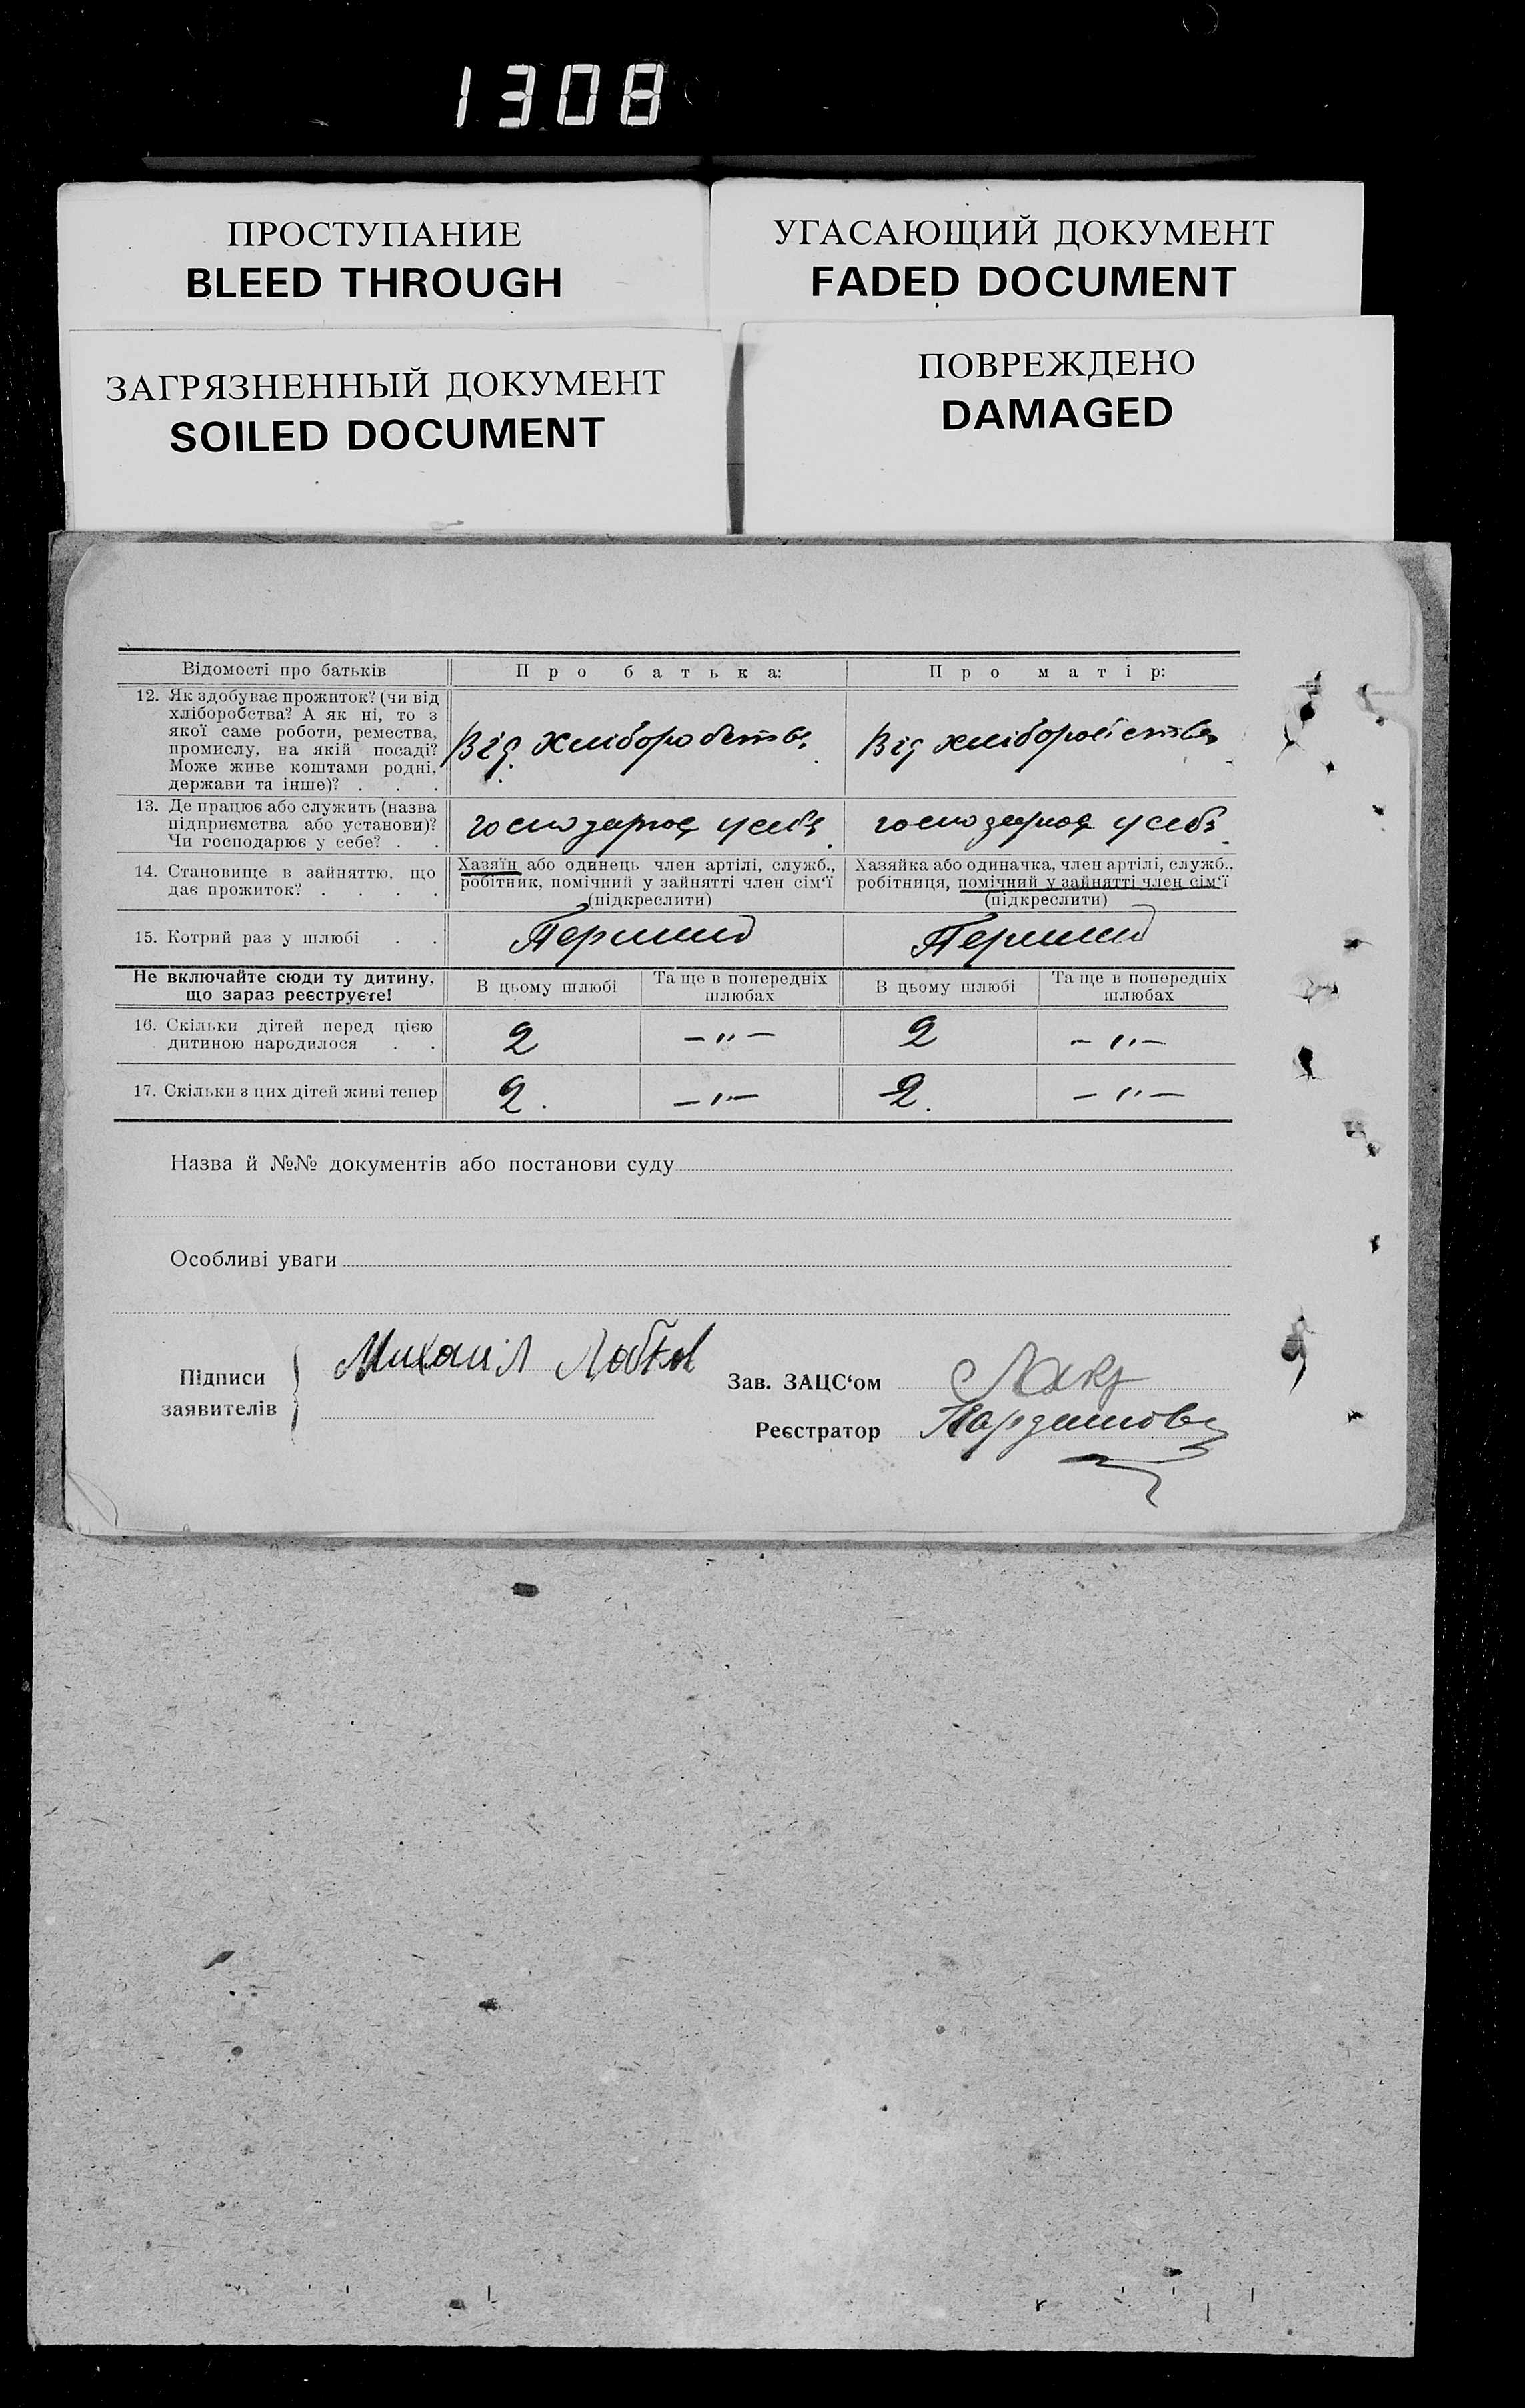 1308
ПРОСТУПАНИЕ
BLEED THROUGH
УГАСАЮЩИЙ ДОКУМЕНТ
FADED DOCUMENT
ЗАГРЯЗНЕННЫЙ ДОКУМЕНТ
SOILED DOCUMENT
ПОВРЕЖДЕНО
DAMAGED
Відомості про батьків
Про батька:
Про матір:
12. Як здобуває прожиток? (чи від
хліборобства? А як ні, то з
якої саме роботи, ремества,
промислу, на якій посаді?
Може живе коштами родні,
держави та інше)? . . .
Від хліборобства
Від хліборобства
13. Де працює або служить (назва
підприємства або установи)?
Чи господарює у себе? . .
господарює у себе
господарює у себе
14. Становище в зайняттю, що
дає прожиток? . . . .
Хазяїн або одинець член артілі, служб.,
робітник, помічний у зайнятті член сім‘ї
(підкреслити)
Хазяйка або одиначка, член артілі, служб.,
робітниця, помічний у зайнятті член сім‘ї
(підкреслити)
15. Котрий раз у шлюбі . .
Перший
Перший
Не включайте сюди ту дитину,
що зараз реєструєте!
В цьому шлюбі
Та ще в попередніх
шлюбах
В цьому шлюбі
Та ще в попередніх
шлюбах
16. Скільки дітей перед цією
дитиною народилося . .
2
— " —
2
— " —
17. Скільки з цих дітей живі тепер
2.
— " —
2.
— " —
Назва й №№ документів або постанови суду
Особливі уваги
Підписи
заявителів
Михаіл
Зав. ЗАЦС‘ом
Реєстратор